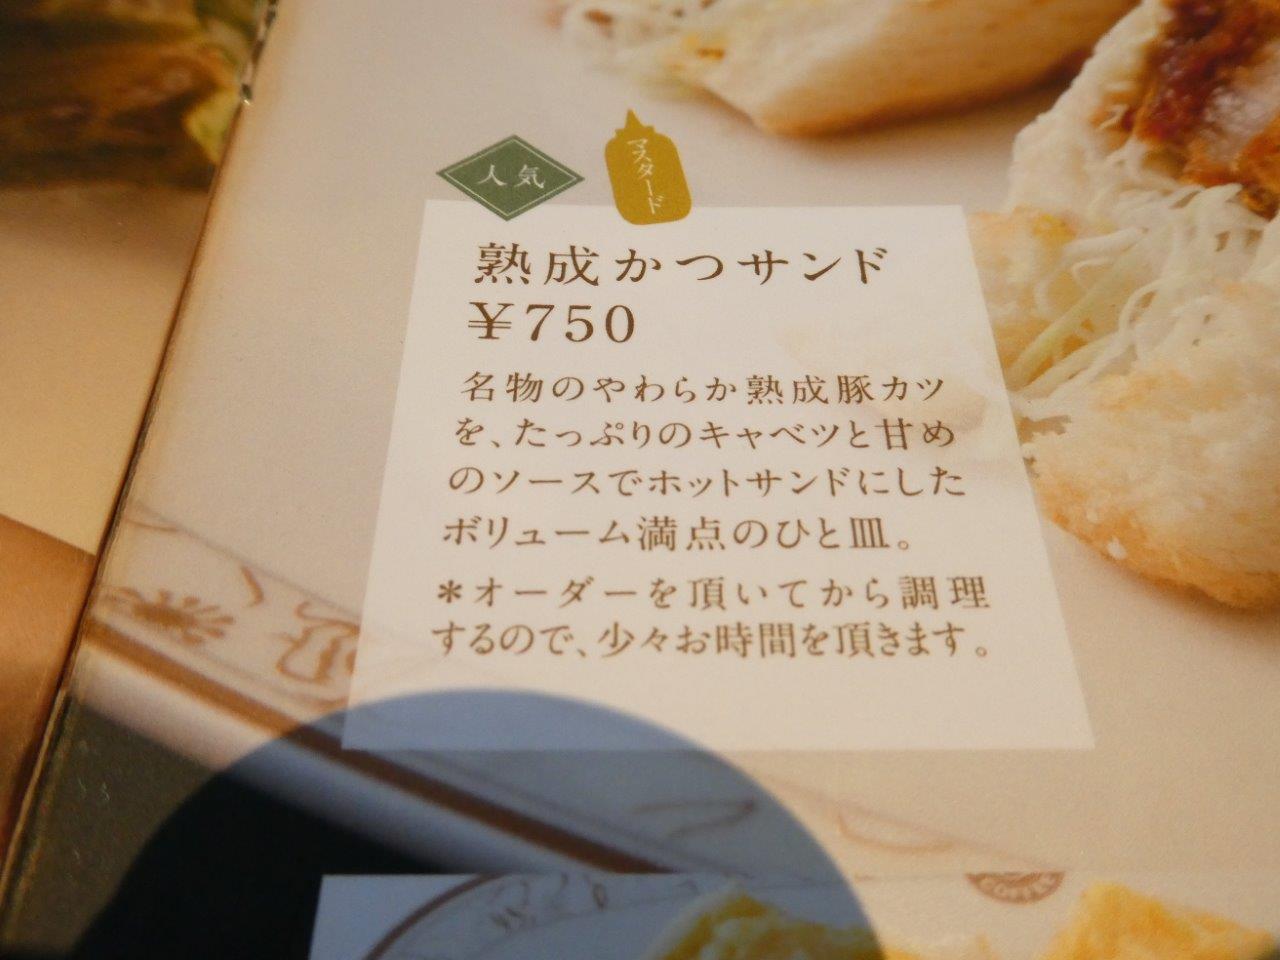 人気
マスタード
熟成かつサンド
¥750
名物のやわらか熟成豚カツ
を、たっぷりのキャベツと甘め
のソースでホットサンドにした
ボリューム満点のひと皿。
＊オーダーを頂いてから調理
するので、少々お時間を頂きます。
COFFEE